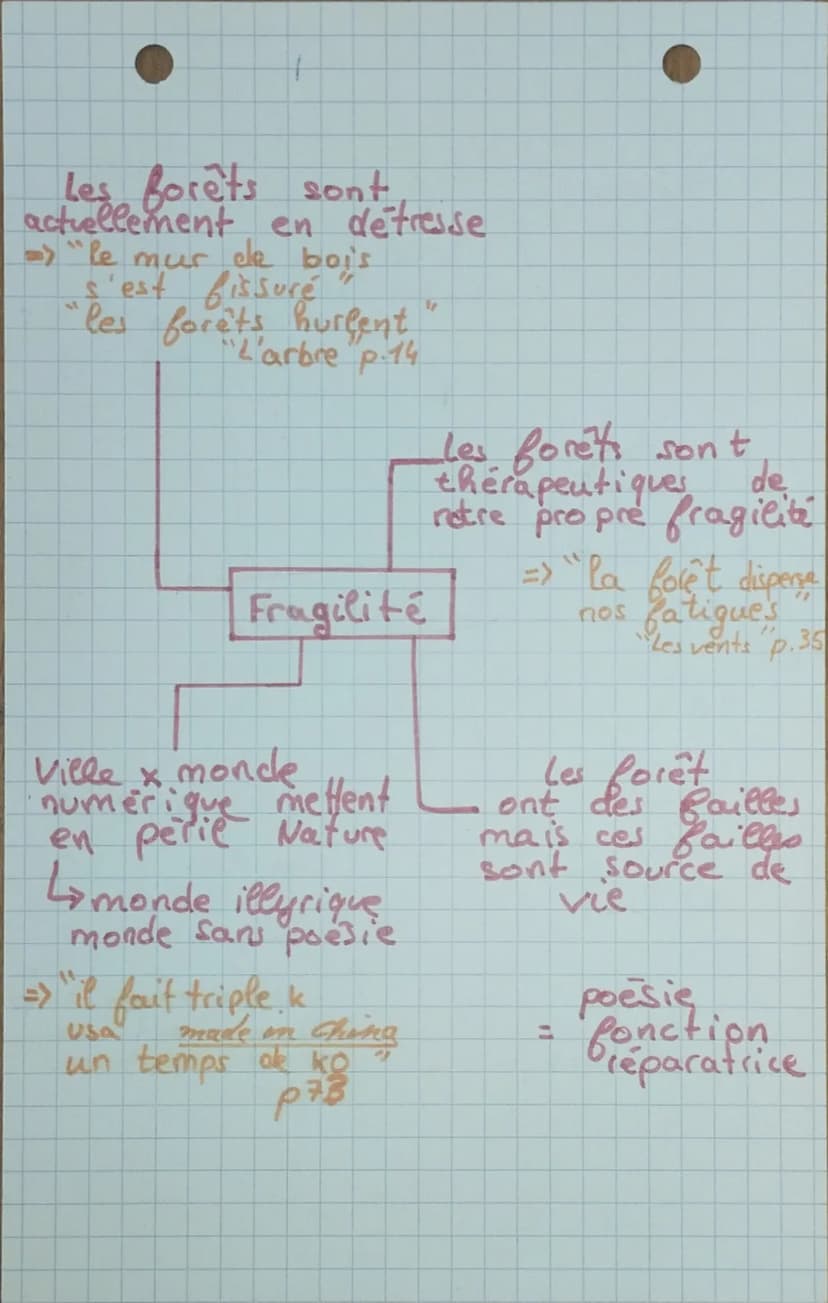 Les forêts sont
actuellement en détresse
=> "le mur de bois
s'est fissuré"
"les forêts hurlent"
"L'arbre" p.14
Les forêts sont
thérapeutiques de
notre propre fragilité
=> "la forêt disperse
nos fatigues"
"Les vents" p.35
Fragilité
Ville x monde
numérique mettent
en péril Nature
↳ monde illyrique
monde sans poésie
=> "il fait triple k
usa made in China
un temps de ko"
p73
Les forêt
ont des failles
mais ces failles
sont source de
vie
poésie
= fonction
réparatrice